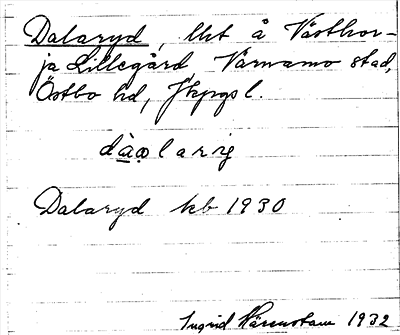 Dalaryd, lht å Västhor-
ja Lillegård Värnamo stad,
Östbo hd, Jkpgs l.
dàɷlarig
Dalaryd kb 1930
Ingrid 1932